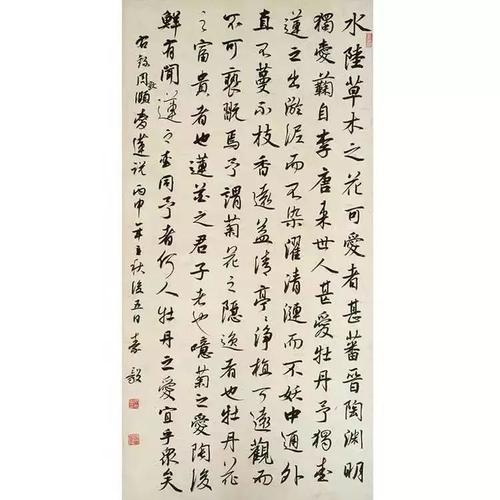 水陸草木之花可愛者甚蕃晉陶淵明
獨愛蘜自李唐来世人甚愛牡丹予獨愛
蓮之出淤泥而不染濯清漣而不妖中通外
直不蔓不枝香遠益清亭〻淨植可遠觀而
不可褻翫焉予謂菊花之隱逸者也牡丹花
之富貴者也蓮花之君子者也噫菊之愛陶後
鮮有聞蓮之愛同予者何人牡丹之愛宜乎眾矣
右錄周敦頤愛蓮說丙申年立秋後五日